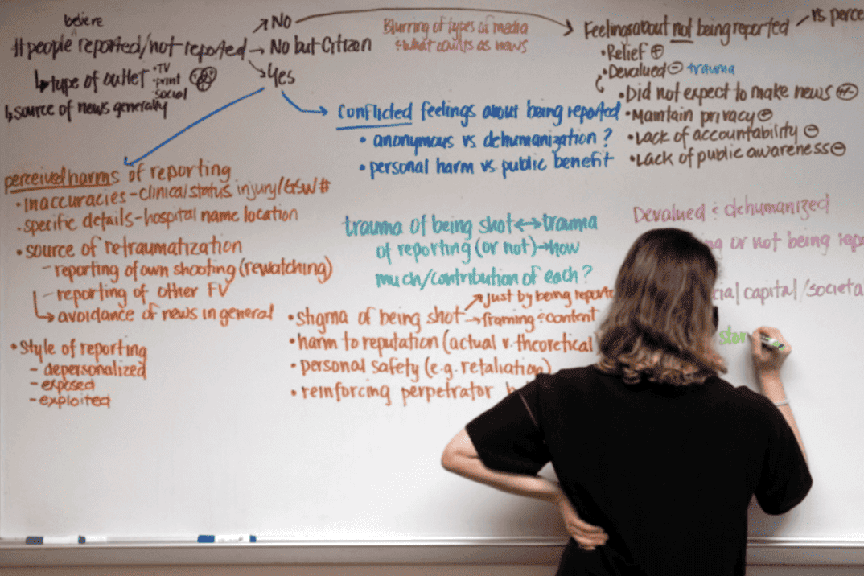 believe
#people reported/not reported
→ No
→ No but Citizen
→ Yes
↳ type of outlet
• TV
• print
social
↳ source of news generally
Blurring of types of media
& what counts as news
Feelings about not being reported
vs perce
• Relief ⊕
• Devalued ⊖ trauma
• Did not expect to make news
• Maintain privacy
• Lack of accountability ⊖
• Lack of public awareness ⊖
Conflicted feelings about being reported
• anonymous vs dehumanization?
• personal harm vs public benefit
perceived harms of reporting
• inaccuracies - clinical status injury/GSW #
• specific details - hospital name location
• source of retraumatization
- reporting of own shooting (rewatching)
- reporting of other FV
↳ avoidance of news in general
• Style of reporting
- depersonalized
- exposed
- exploited
trauma of being shot ↔ trauma
of reporting (or not) → how
much/contribution of each?
• Stigma of being shot
↗ just by being reporte
→ framing & content
• harm to reputation (actual v. theoretical
• personal safety (e.g. retaliation)
• reinforcing perpetrator
Devalued & dehumanized
ng or not being repo
cial capital/societa
stor